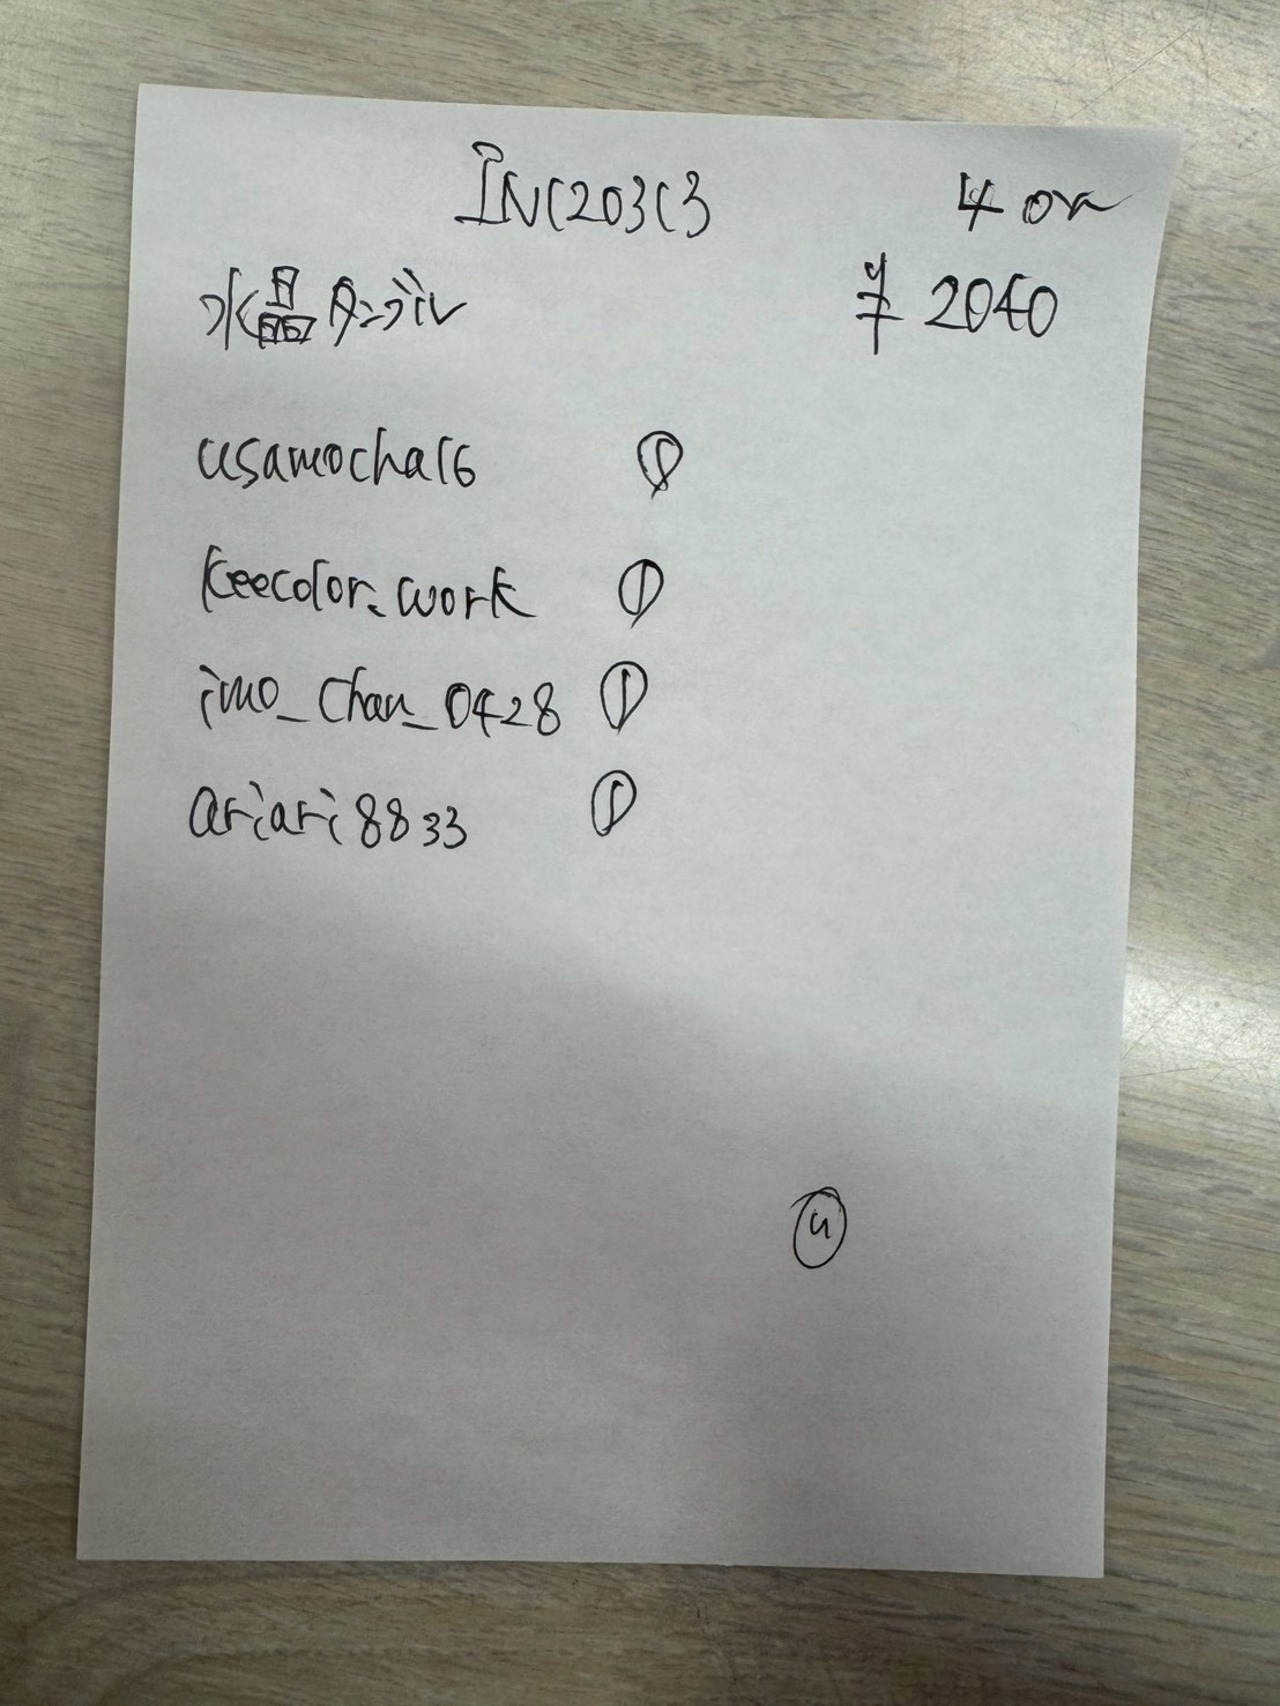 INC203C3 4 or
水晶 ¥ 2040
usamocha16 ①
keecolor_work ①
imo_chan_0428 ①
ariari8833 ①
④